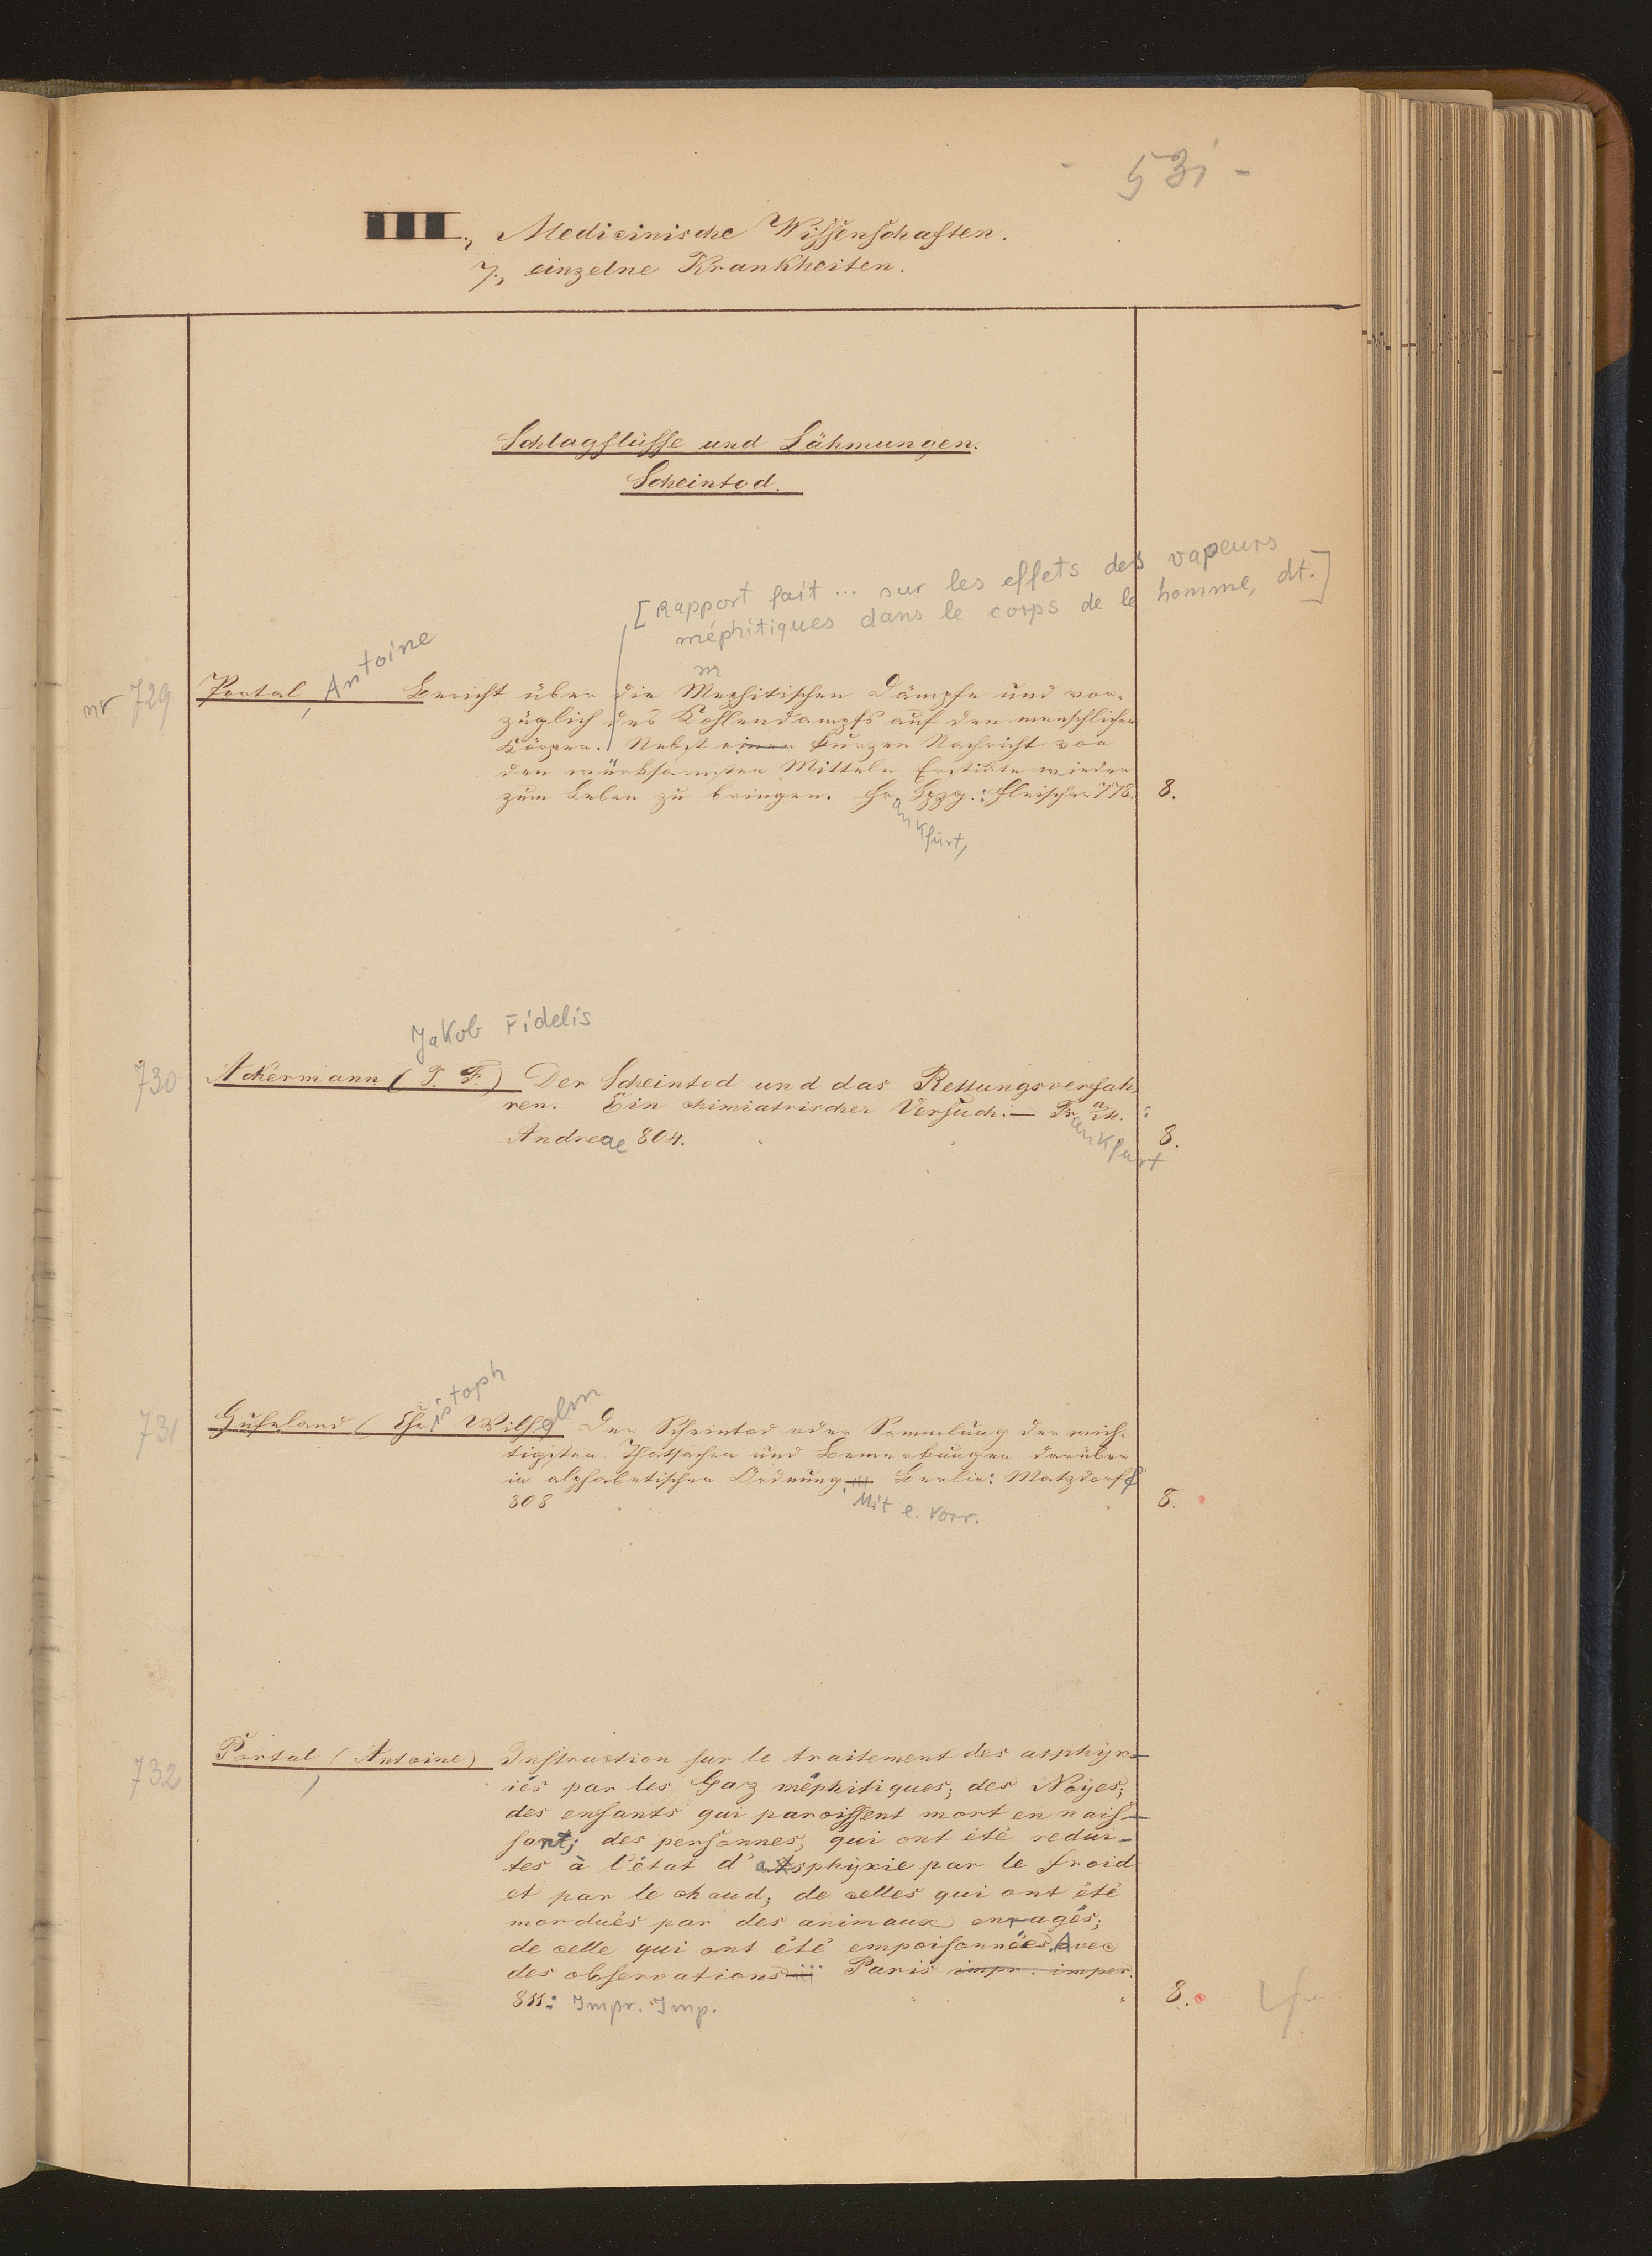 - 531 -
III., Medicinische Wissenschaften.
7., einzelne Krankheiten.
Schlagflüsse und Lähmungen.
Scheintod.
[Rapport fait ... sur les effets des vapeurs
méphitiques dans le corps de le homme, dt.]
nr 729 Portal, Antoine Bericht über die Mephitischen Dämpfe und vor-
m
züglich des Kohlendampfs auf den menschlichen
Körper. Nebst einer kurzen Nachricht von
den würksamsten Mitteln Erstikte wieder
zum Leben zu bringen. Fr. Lpzg.: Fleischer 778. 8.
ankfurt,
Jakob Fidelis
730 Ackermann (J. F.) Der Scheintod und das Rettungsverfah-
ren. Ein chimiatrischer Versuch. — Fr. a. M. :
ankfurt
Andreae 804. 8.
731 Hufeland (Christoph Wilhelm Der Scheintod oder Sammlung der wich-
tigsten Thatsachen und Bemerkungen darüber
in alphabetischer Ordnung. Berlin: Matzdorff
Mit e. Vorr.
808 8.
732 Portal, (Antoine) Instruction sur le traitement des asphyx-
iés par les Gaz méphitiques; des Noyes;
des enfants qui paroissent mort en nais-
sant; des personnes, qui ont été rédui-
tes à l'état d'asphyxie par le froid
et par le chaud; de celles qui ont été
mordués par des animaux enragés;
de celle qui ont été empoisonnées. Avec
des observations ... Paris impr. imper.
811: Impr. Imp. 8.